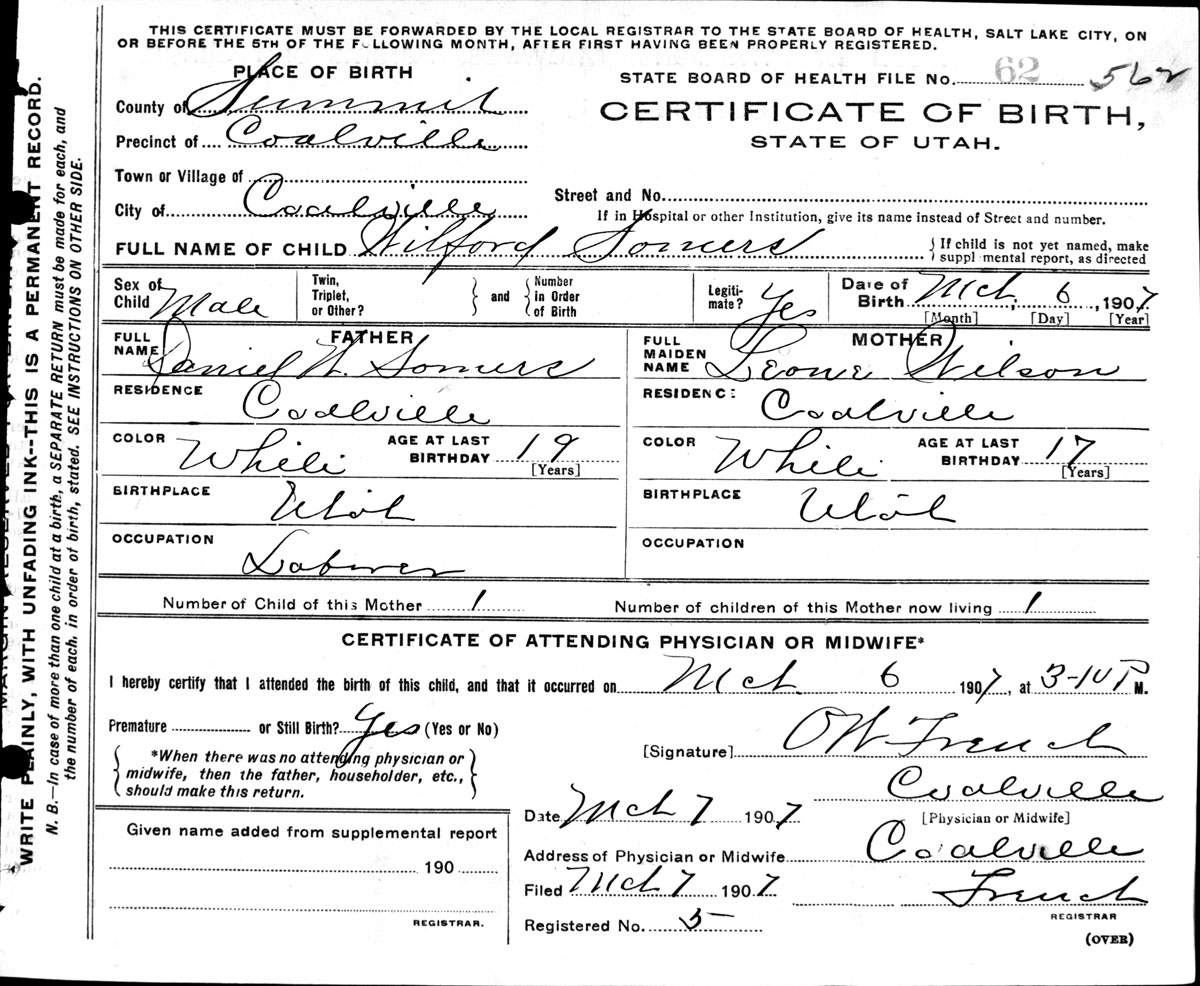 THIS CERTIFICATE MUST BE FORWARDED BY THE LOCAL REGISTRAR TO THE STATE BOARD OF HEALTH, SALT LAKE CITY, ON
OR BEFORE THE 5TH OF THE FOLLOWING MONTH, AFTER FIRST HAVING BEEN PROPERLY REGISTERED.
PLACE OF BIRTH
STATE BOARD OF HEALTH FILE No. 62 562
County of Summit
CERTIFICATE OF BIRTH,
Precinct of Coalville
STATE OF UTAH.
Town or Village of
Street and No.
City of Coalville
If in Hospital or other Institution, give its name instead of Street and number.
FULL NAME OF CHILD Wilford Somers
{ If child is not yet named, make
supplmental report, as directed
Sex of Child Male
Twin, Triplet, or Other? } and { Number in Order of Birth
Legiti-mate? Yes
Date of Birth Mch. 6, 1907
[Month] [Day] [Year]
FATHER
FULL NAME Daniel W. Somers
RESIDENCE Coalville
COLOR White AGE AT LAST BIRTHDAY 19 [Years]
BIRTHPLACE Utah
OCCUPATION Laborer
MOTHER
FULL MAIDEN NAME Leone Wilson
RESIDENCE Coalville
COLOR White AGE AT LAST BIRTHDAY 17 [Years]
BIRTHPLACE Utah
OCCUPATION
Number of Child of this Mother 1 Number of children of this Mother now living 1
CERTIFICATE OF ATTENDING PHYSICIAN OR MIDWIFE*
I hereby certify that I attended the birth of this child, and that it occurred on Mch 6 1907, at 3-10 P M.
Premature or Still Birth? Yes (Yes or No)
[Signature] O W French
*When there was no attending physician or
midwife, then the father, householder, etc.,
should make this return.
Coalville
[Physician or Midwife]
Date Mch 7 1907
Address of Physician or Midwife Coalville
Filed Mch 7 1907 French
REGISTRAR
Registered No. 5
(OVER)
Given name added from supplemental report
190
REGISTRAR.
WRITE PLAINLY, WITH UNFADING INK--THIS IS A PERMANENT RECORD.
N. B.—In case of more than one child at a birth, a SEPARATE RETURN must be made for each, and
the number of each. in order of birth, stated. SEE INSTRUCTIONS ON OTHER SIDE.